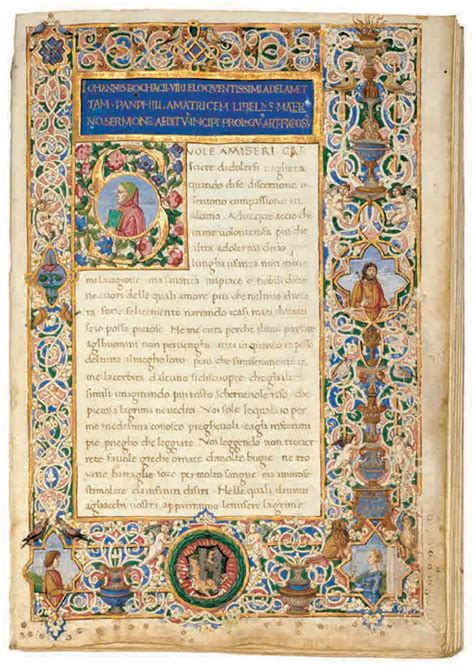 IOHANNIS BOCHACII VIRI ELOQVENTISSIMI AD FLAMET
TAM PANPHILI AMATRICEM LIBELLVS MATER
NO SERMONE AEDITVS INCIPI PROLOGV
SVOLE A MISERI CRE
scere didolersi vagheza
quando dise discernono o
sentono compassione in
alcuno. Adunque accio che
me volonterosa piu che
altra adolermi dicio
lunga usanza non
ma lacagione ma savanzi mi piace o nobili
ne cuori delle quali amore piu che nelmio dimora
forse felicemente narrando icasi miei
sio posso pietose. Ne me cura perche ilmio parlare
agliuomini non pervenga anzi in quanto io posso
deltutto il niego loro pero che
me lacerbita dalcuno sidiscuopre che glialtri
simili imaginando piu tosto schernevole riso che
pietosa lagrima ne vedrei. Voi sole lequali io per
me medesima conosco pieghevoli
pie priego che leggiate. Voi leggendo non trouer
rete favole grechе ornate damolte bugie ne tro
yane battaglie soze per molto sangue ma amorose
stimolate damolti disiri. Nelle quali davanti
agliocchi vostri appariranno lemisere lagrime